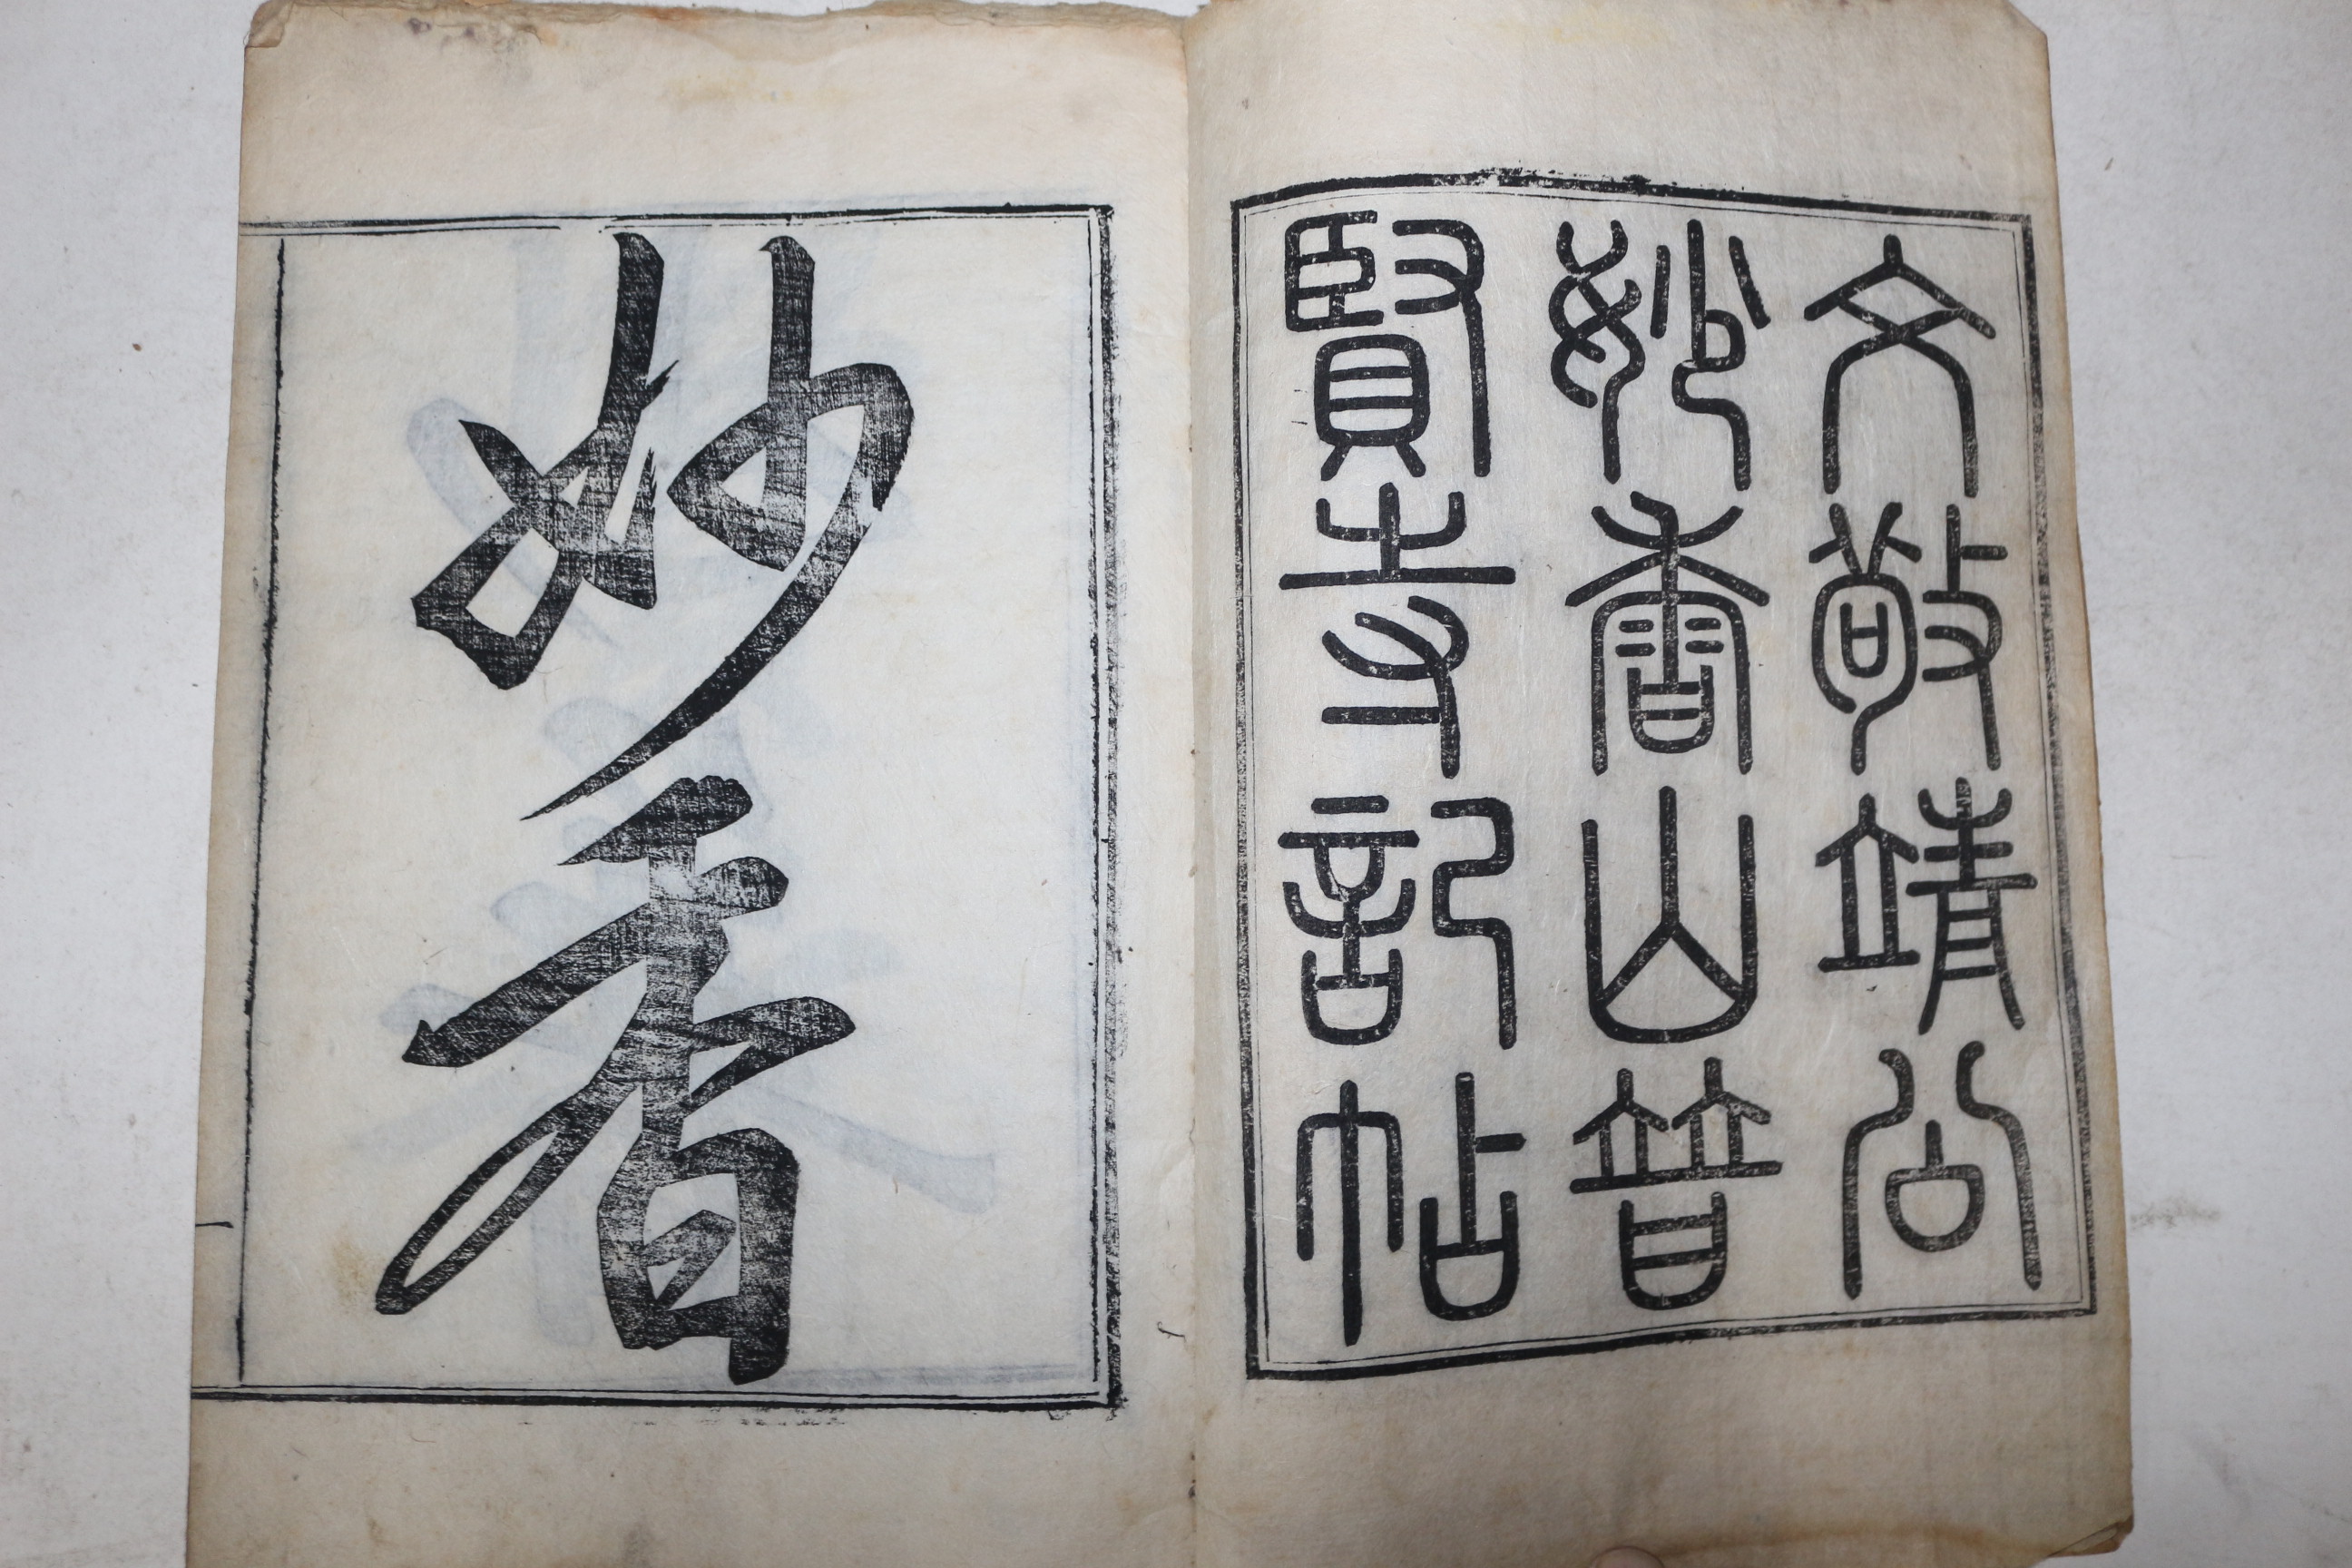 文敬靖公
妙香山普
賢寺記帖
妙香